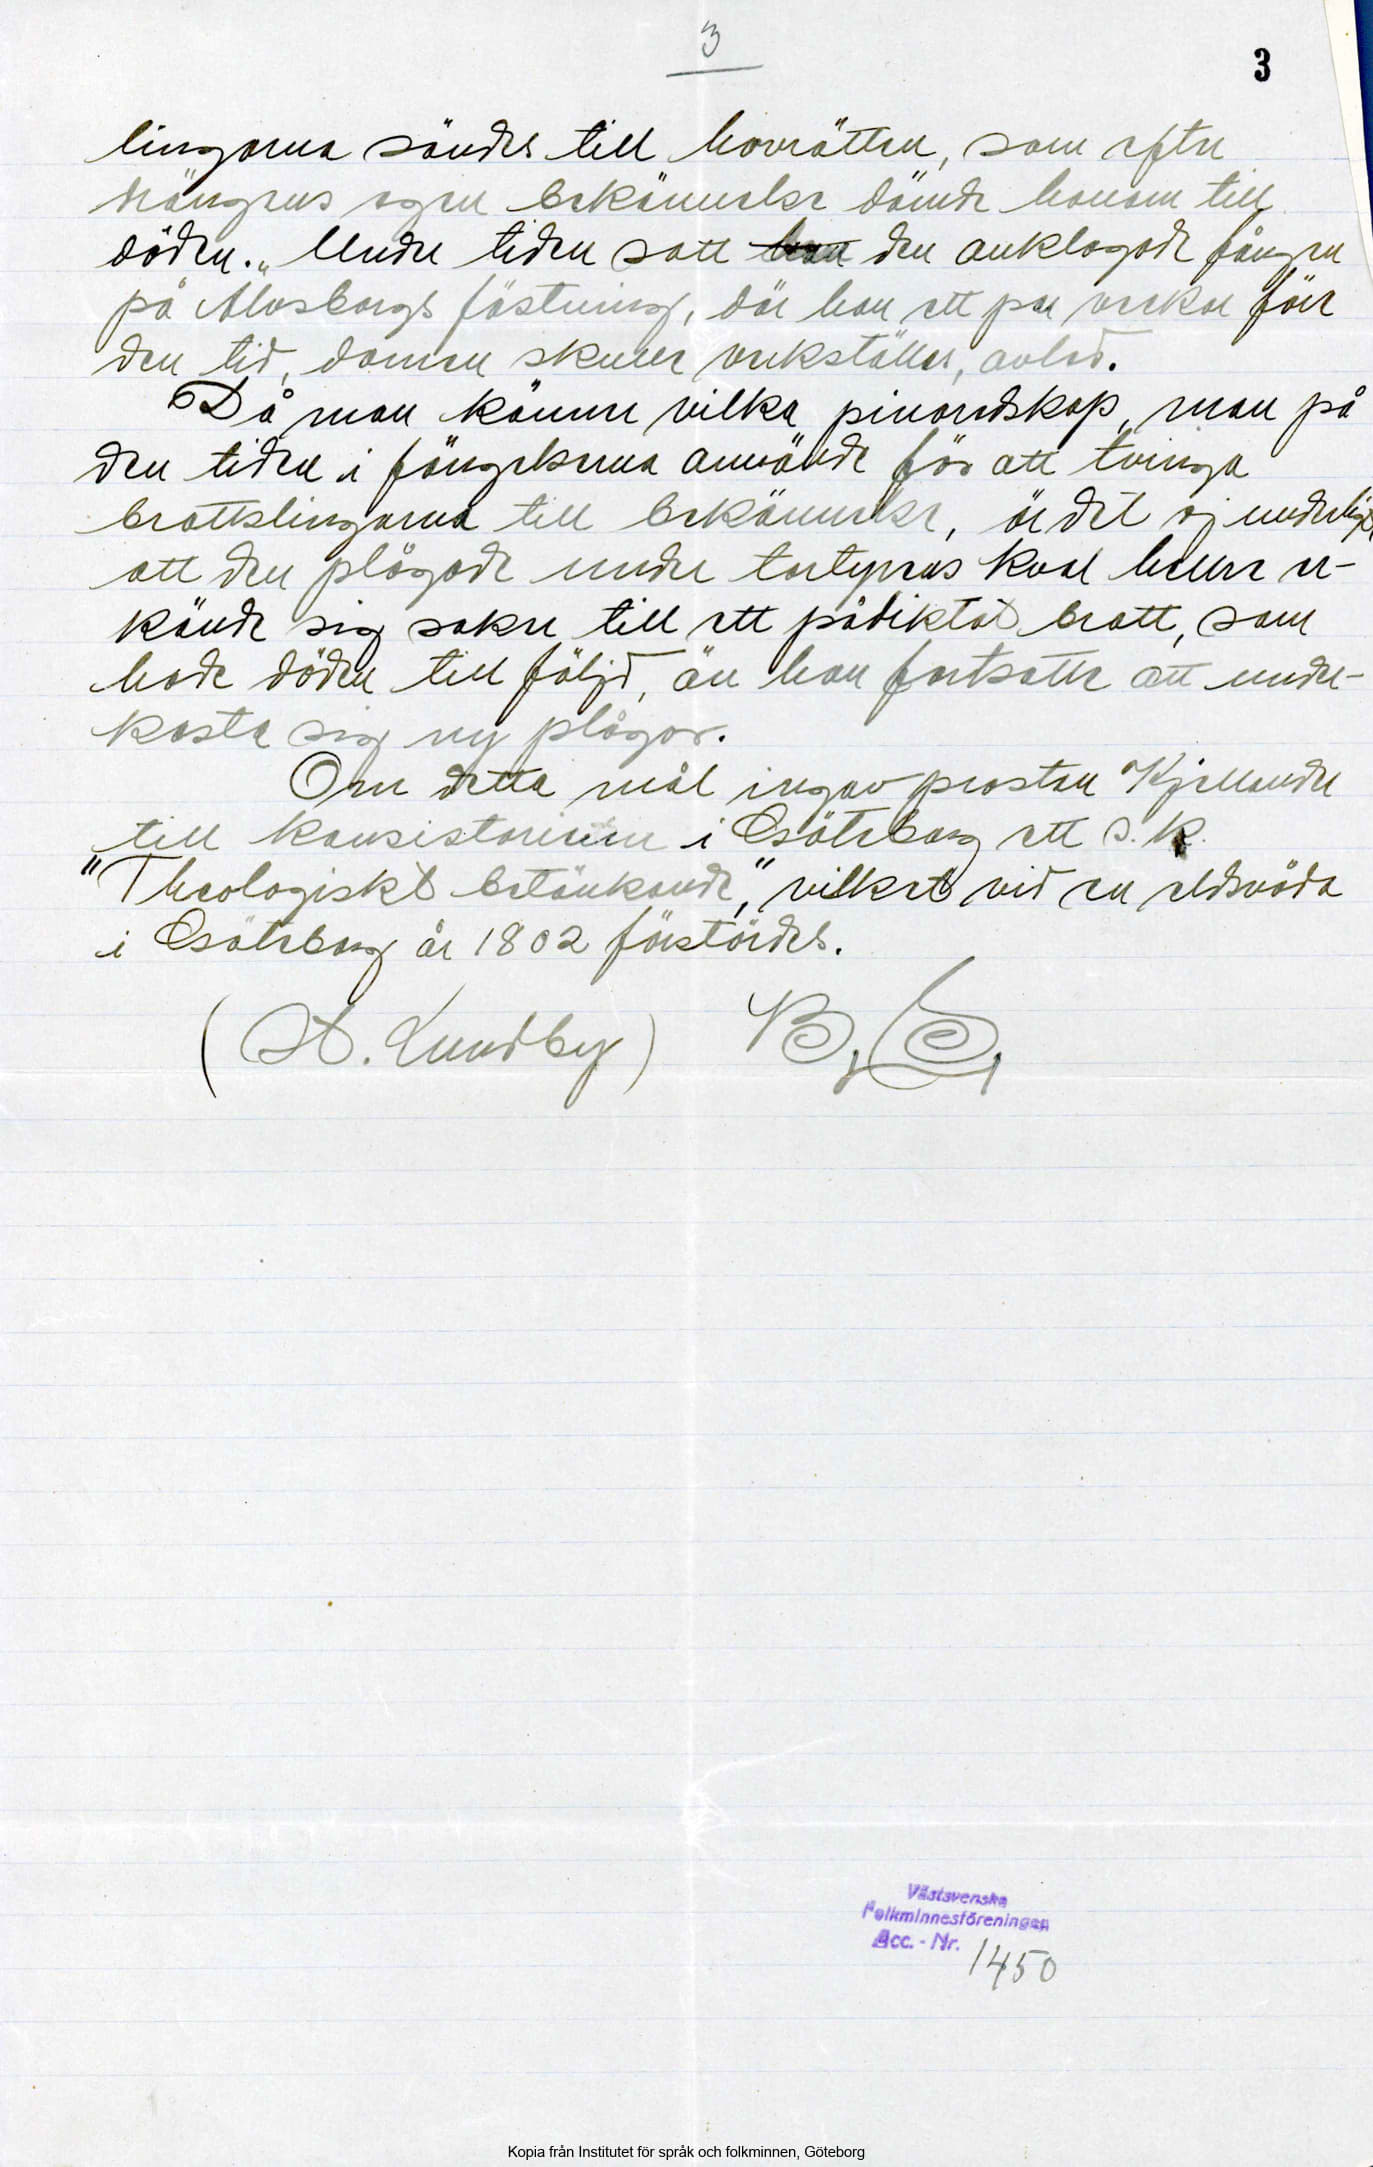 3
3
lingarna sändes till hovrätten, som efter
drängens egen bekännelse dömde honom till
döden." Under tiden satt han den anklagade fången
på Älvsborgs fästning, där han ett par veckor före
den tid, domen skulle verkställas, avled.
Då man känner vilka pinoredskap, man på
den tiden i fängelserna använde för att tvinga
brottslingarna till bekännelse, är det ej underligt,
att den plågade under tortyrens kval hellre er-
kände sig saker till ett pådiktat brott, som
hade döden till följd, än han fortsatte att under-
kasta sig ny plågor.
Om detta mål ingav prosten Kjellander
till konsistorium i Göteborg ett s.k.
"Theologiskt betänkande," vilket vid en eldsvåda
i Göteborg år 1802 förstördes.
(St. Lundby)
Västsvenska
Folkminnesföreningen
Acc. - Nr. 1450
Kopia från Institutet för språk och folkminnen, Göteborg